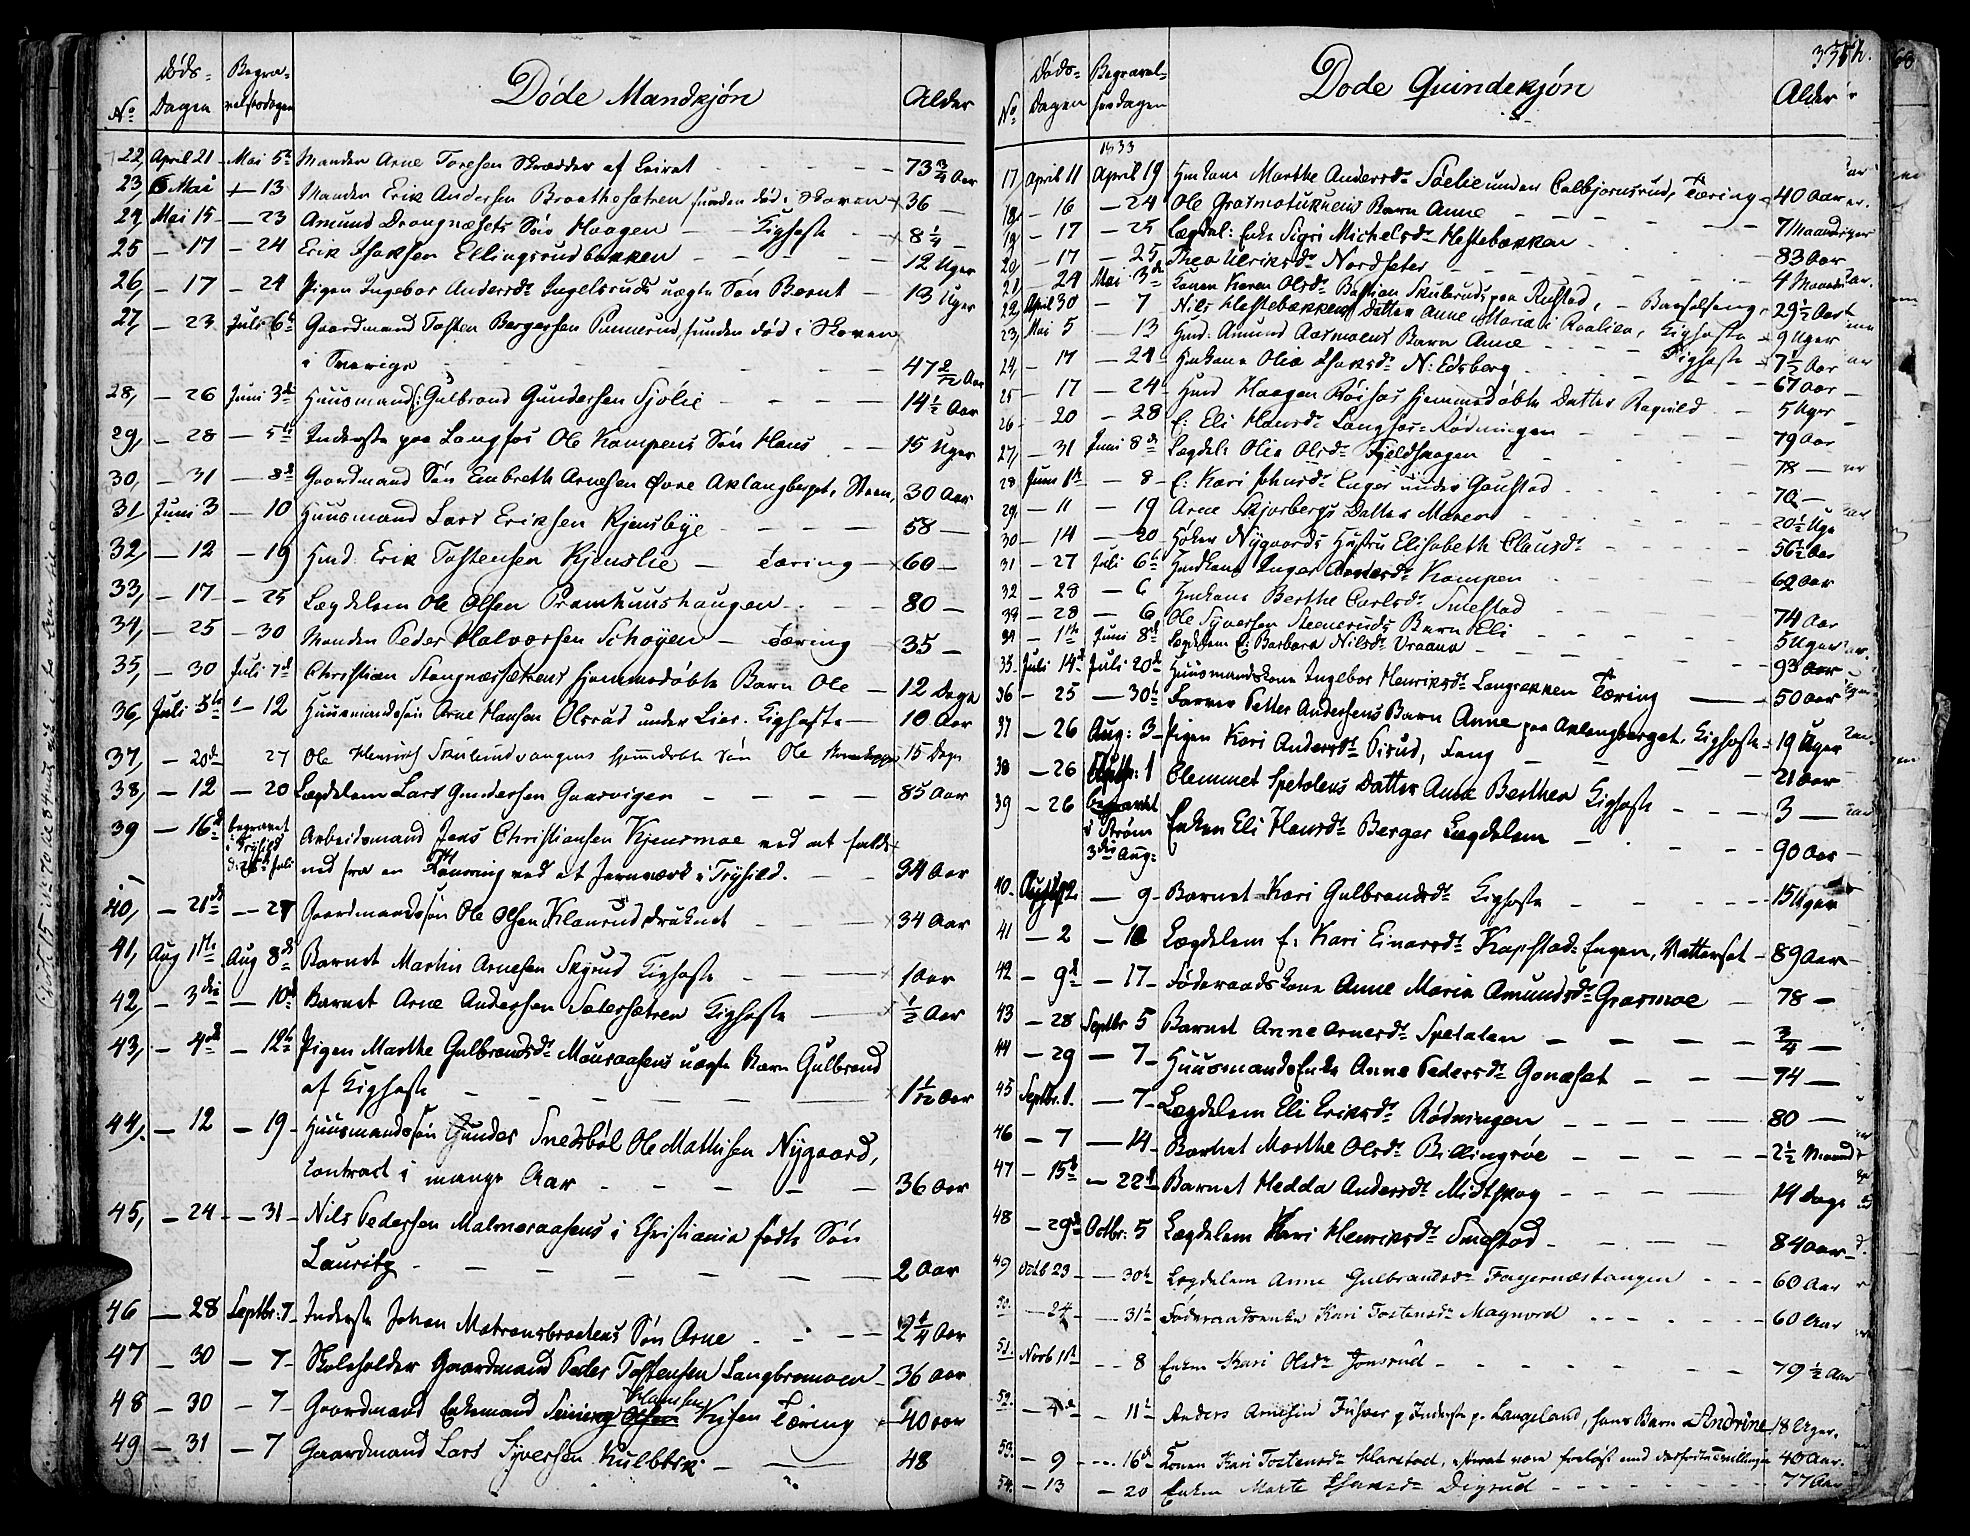 Døde Mandkjøn
No
Døds-
Dagen
Begra-
velsesdagen
Alder
22, April 21 - Mai 5te Manden Arne Toresen Skrædder af Leiret 73 3/4 Aar
23, 5 Mai - 13 Manden Erik Andersen Braathesætren funden død i Skoven 36 -
24, Mai 15 - 23 Amund Drangnæsets Søn Haagen Kighoste 8 1/4 -
25 - 17 - 24 Erik Isaksen Ellingsrudbakken 12 Uger
26, - 17 - 24 Pigen Ingebor Andersdr Ingelsruds uægte Søn Bernt 13 Uger
27, - 23 Juli 6te Gaardmand Tosten Bergersen Punnerud, funden død i Skoven
i Sverige 47 Aar
28, - 26 Juni 3de Huusmand Gulbrand Gundersen Sjølie 14 1/2 Aar
29, - 28 - 5te Inderste paa Langfos Ole Kampens Søn Hans 15 Uger
30, - 31 - 8de Gaardmand Søn Embreth Arnesen Øvre Aklangberget, Steen, 30 Aar
31, Juni 3 - 10 Huusmand Lars Eriksen Kjensbye 58 -
32, - 12 - 19 Hmd. Erik Tostensen Kjenslie - Tæring 60 -
33, - 17 - 25 Lægdslem Ole Olsen Pramhuushaugen 80 -
34, - 25 - 30 Manden Peder Halvorsen Schøyen - Tæring 35 -
35, - 30 Juli 7de Christian Stengnæssækens hjemmedøbte Barn Ole 12 Dage
36, Juli 5te - 12 Huusmandssøn Arne Hansen Olsrud under Lier. Kighoste 10 Aar
37, - 20de 27 Ole Henrich Skulerudvangens hjemmedøbte Søn Ole 15 Dage
38, - 12 - 20 Lægdslem Lars Gundersen Gaarvigen 85 Aar
39 - 16de begravet i Trysild d: 25de Juli Arbeidsmand Jens Christiansen Kjensmoe ved at falde
ned fra en ved et Jernværk i Trysild. 34 Aar
40, - 21de - 27 Gaardmandssøn Ole Olsen Klanrud druknet 34 Aar
41, Aug 1ste Aug 8de Barnet Martin Arnesen Skyrud Kighoste 1 Aar
42, - 3die - 10de Barnet Arne Andersen Sætersætren Kighoste 1/2 Aar
43, - 4de - 12te Pigen Marthe Gulbrandsdr Mauraasens uægte Barn Gulbrand
af Kighoste 1 1/12 Aar
44, - 12 - 19 Huusmandssøn Gunder Snedsbøl Ole Mathisen Nygaard,
contract i mange Aar 36 Aar
45, - 24 - 31 - Nils Pedersen Malmeraasens i Christiania fødte Søn
Lauritz 2 Aar
46 - 28 Septbr. 7 Inderste Johan Matrensbraatens Søn Arne 2 1/4 Aar
47 - 30 - 7 Skoleholder Gaardmand Peder Tostensen Langbromoen 36 Aar
Hansen
48 - 30 - 7 Gaardmand Enkemand Olsen Kysen Tæring 40 Aar
49 - 31 - 7 Gaardmand Lars Syversen Kulblik 48
335 h.
Døde Quindekjøn
No
Døds-
Dagen
Begravel-
sesdagen
Alder
1833
17, April 11 April 19 Hmd Kone Marthe Andersdr Sæelie under Colbjørnsrud, Tæring 40 Aar
18, - 16 - 24 Ole Grasmotukuens Barn Anne 7 Maaneder
19, - 17 - 25 Lægdsl: Enke Sigri Michelsdr Hestebækken 83 Aar
20, - 17 - 25 Thea Ulriksdr Nordseter 4 Maaneder
21 24 Mai 3de Konen Karen Olsdr Bastian Skuleruds paa Rustad, - Barselseng 29 1/2 Aar
22, April 30 - 7 Nils Hestebækkens Datter Anne Maria i Roalien, Kighoste 9 Uger
23, Mai 5 - 13 Hmd. Amund Aasmoens Barn Anne Kighoste 7 1/2 Aar
24, - 17 - 24 Hmkone Olia Isaksdr N: Edsberg 67 Aar
25 - 17 - 24 Hmd Haagen Røisæs hjemmedøbte Datter Ragnild 5 Uger
26 - 20 - 28 E: Eli Hansdr Langsæs-Rødningen 79 Aar
27, - 31 Juni 8de Lægdsl: Olia Olsdr Fjeldskogen 78 -
28 Juni 1ste - 8 E: Kari Johnsdr Enger under Gaustad 70 -
29, - 11 - 19 Arne Skjørbergs Datter Maren 20 1/2 Uge
30 - 14 - 20 Høker Nygaards Hustru Elisabeth Clausdr 56 1/2 Aar
31 - 27 Juli 6te Hmdkone Inger Andersdr Kampen 62 Aar
32 - 28 - 6 Hmkone Berthe Carlsdr Smestad 74 Aar
- 28 - 6 Ole Syversen Steneruds Barn Eli 5 Uger
34 - 1ste Juni 8de Lægdslem E: Barbara Nilsdr Vraana 93 Aar
35 Juli 14de Juli 20de Huusmandskone Ingebor Henriksdr Langrækken Tæring 50 Aar
36 - 25 - 30te Farver Petter Andersens Barn Anne paa Aklangberget, Kighoste 19 Uger
37 - 26 Aug: 3 Pigen Kari Andersdr Pirud, Fang 21 Aar
38 - 26 1 Clemmet Spetalens Datter Anne Berthea Kighoste 3 -
39 - 26 begravet i Strøm 3die Aug: Enken Eli Hansdr Berger Lægdslem 90 Aar
40. Aug 2 - 9 Barnet Kari Gulbrandsdr Kighoste 15 Uger
41 - 2 - 10 Lægdslem E: Kari Einarsdr Kapstad-Engen, Vattersot 89 Aar
42 - 9de - 17 Føderaadskone Anne Maria Amundsdr Grasmoe 78 -
43 - 28 Septbr 5 Barnet Anne Arnesdr Spetalen 3/4 -
44 - 29 - 7 Huusmands Enke Anne Pedersdr Gonæset 74 -
45 Septbr. 1. - 7 Lægdslem Eli Eriksdr Rødningen 80 -
46 - 7 - 14 Barnet Marthe Olsdr Billingsøe 2 1/2 Maaned
47 - 15de - 22de Barnet Hedda Andersdr Midtskog 14 Dage
48 - 29de Octbr: 5 Lægdslem Kari Henriksdr Smestad 84 Aar
49 Octb 23 - 30te Lægdslem Anne Gulbrandsdr Fagernæstangen 60 Aar
50. - 24 - 31te Føderaadsenke Kari Tostensdr Magnord 60 Aar
51. Novb 1ste - 8 Enken Kari Olsdr Jonsrud 79 1/2 Aar
52. - 11te Anders Arnesen Fuhser Inderste p. Langeland, hans Barn Andrine 18 Uger.
53. - 9 - 16de Konen Kari Tostensdr Harstad, efterat være forløst med Tvillinger 40 Aar.
54. - 13 - 20 Enken Marte Isaksdr Digrud 77 Aar